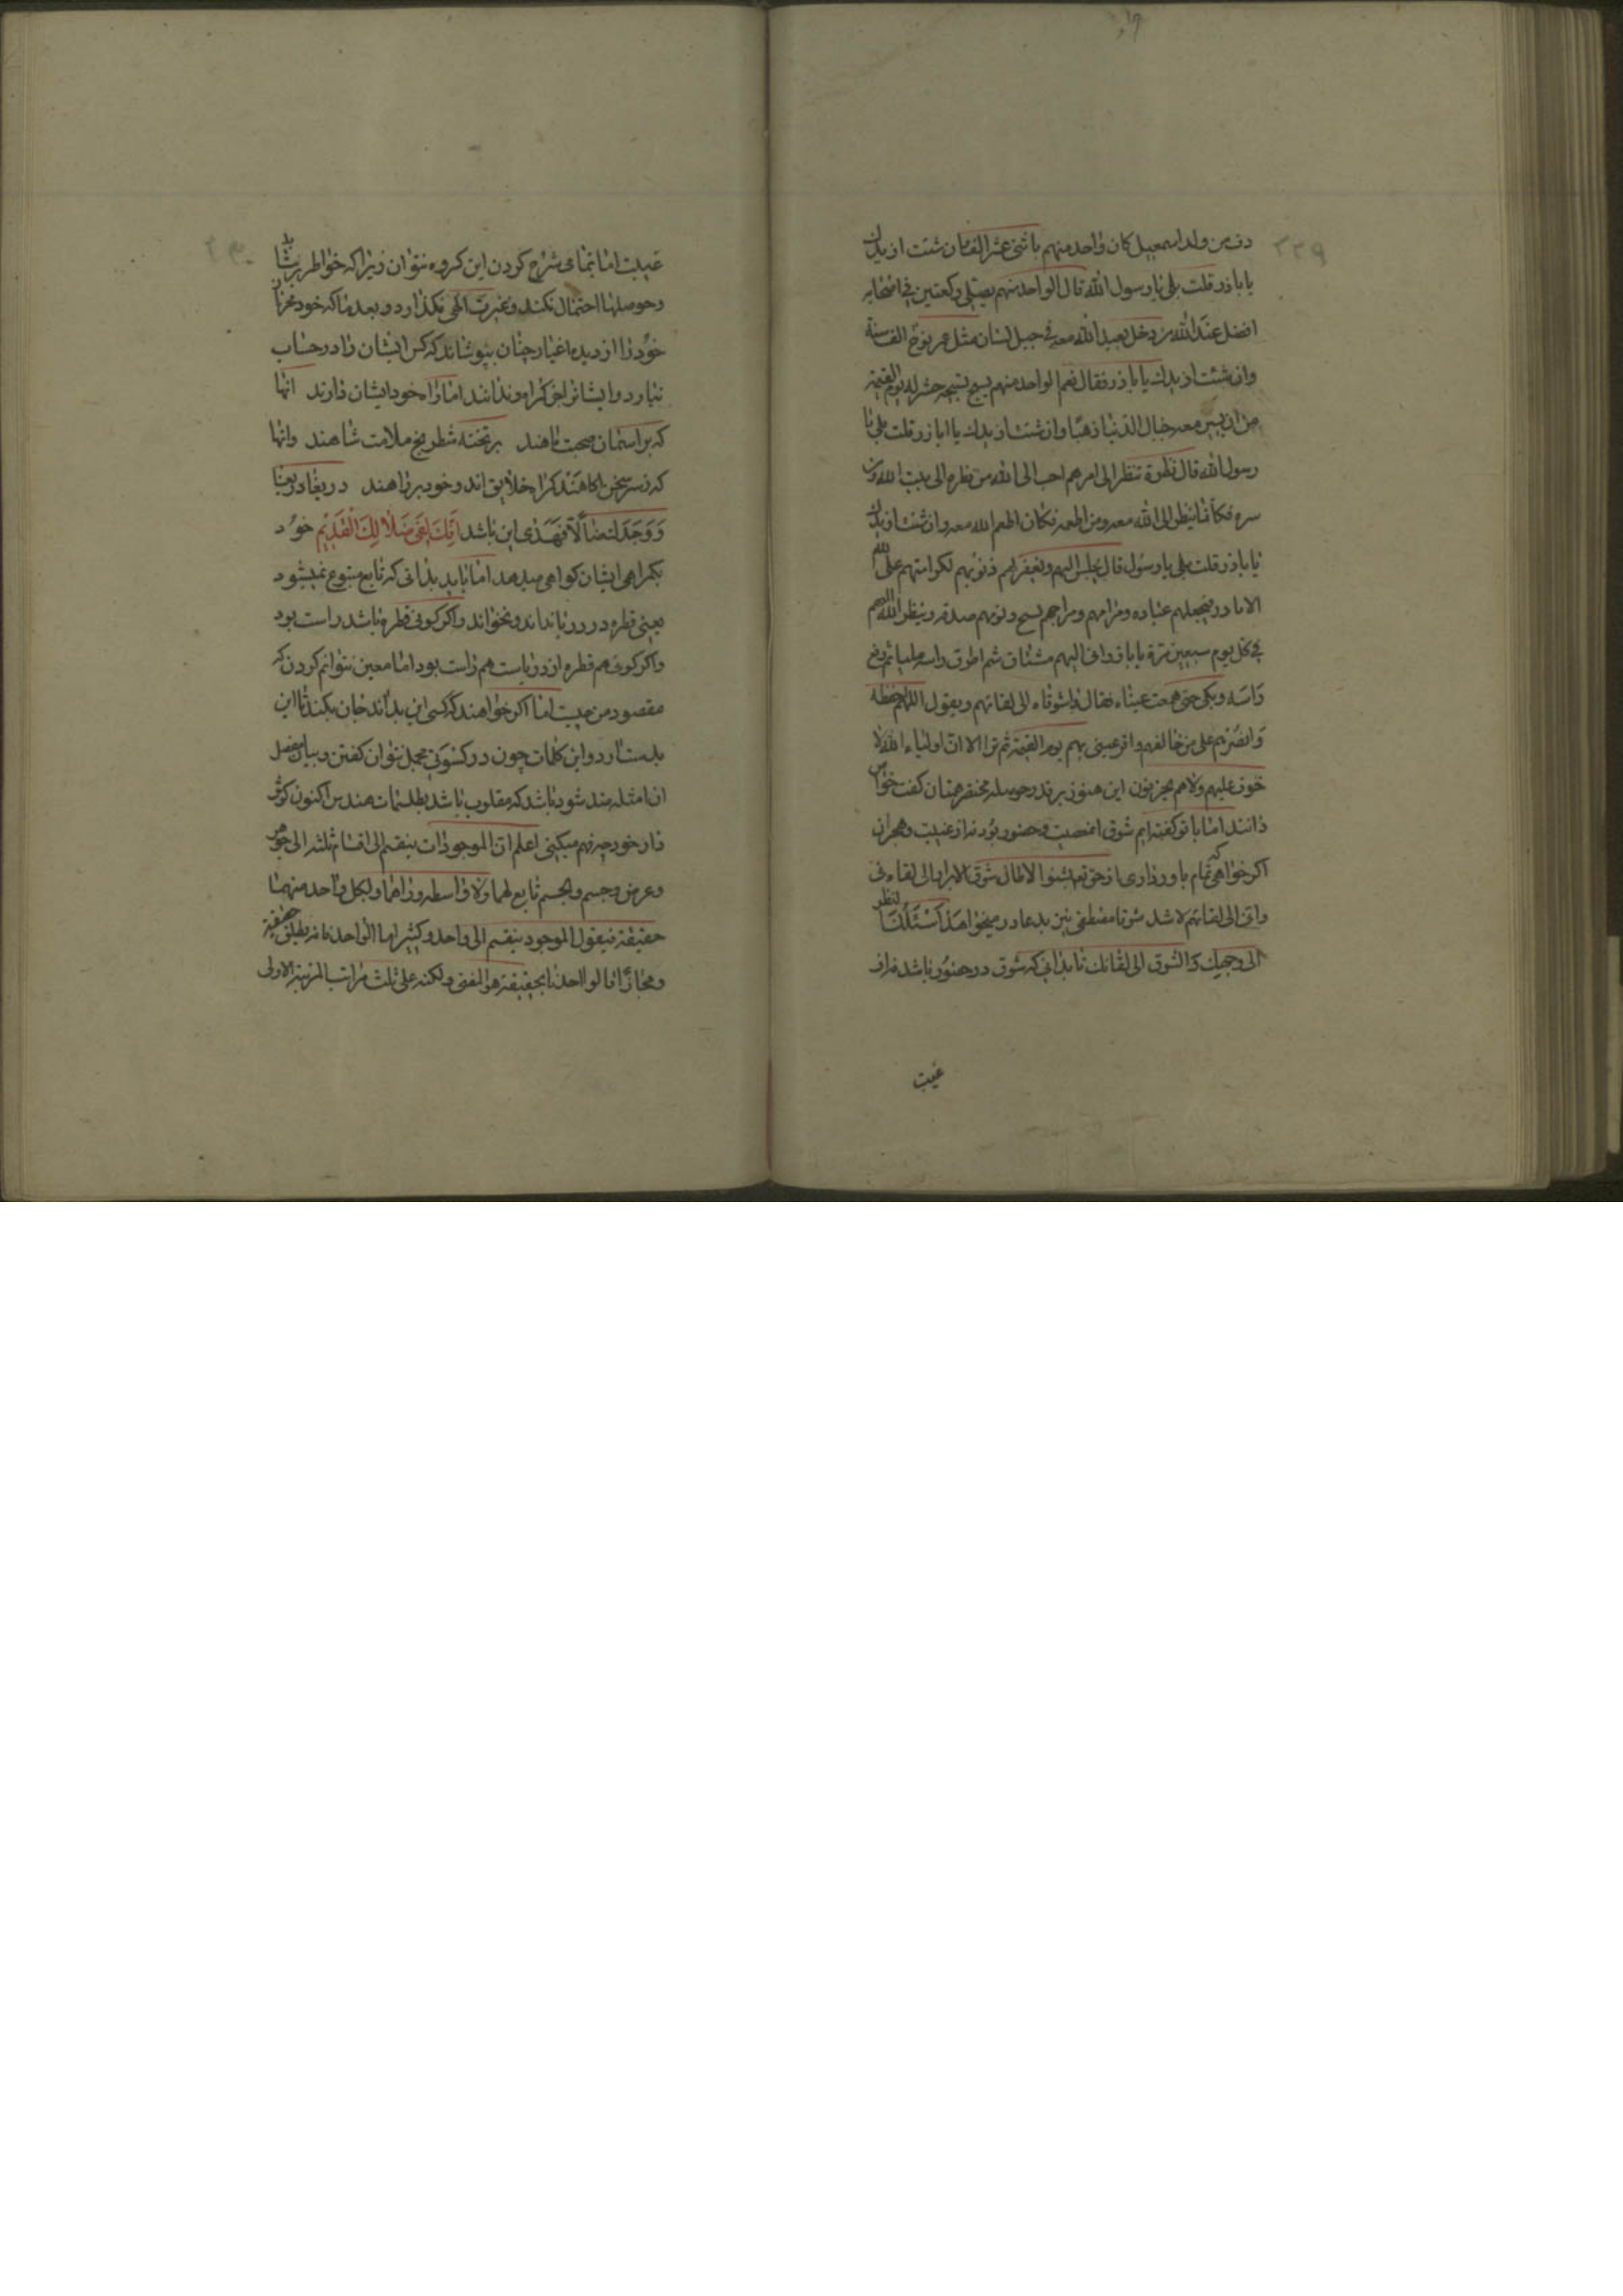 ۲۲۹
دت من ولد اسمعیل کان واحد منهم باثنی عشر الفا وان شئت ازیدک
یا باذر قلت بلی یا رسول الله قال الواحد منهم یصلی رکعتین فی اصحابه
افضل عند الله من رجل یعبد الله معه فی جبل لبنان مثل عمر نوح الف سنة
وان شئت ازیدک یا باذر فقال نعم الواحد منهم یسبح تسبیحه خیر له یوم القیمة
من ان یسیر معه جبال الدنیا ذهبا وان شئت ازیدک یا اباذر قلت بلی یا
رسول الله قال نظرة تنظر الی امرهم احب الی الله من نظره الی بیت الله ومن
سره فکانما ینظر الی الله معه ومن اطعمه فکان اطعم الله معه وان شئت ازیدک
یا باذر قلت بلی یا رسول قال یجلس الیهم ویغفر لهم ذنوبهم لکرامتهم علی الله
الا یا باذر ضحکهم عباده ومزاحهم تسبیح ونومهم صدقه وینظر الله الیهم
فی کل یوم سبعین مرة یا باذر وانی الیهم مشتاق ثم اطرق راسه ملیا ثم رفع
راسه وبکی حتی همعت عیناه فقال واشوقاه الی لقائهم ویقول اللهم احفظهم
وانصرهم علی من خالفهم واقر عینی بهم یوم القیمة ثم قرا الا ان اولیاء الله لا
خوف علیهم ولا هم یحزنون این هنوز بر قدر حوصله مختصر همتان کفت خواص
دانند اما با تو کفته ایم شوق از صحبت وحضور بود نه از غیبت وهجران
اکر خواهی که تمام باور داری از حق تعالی بشنو الا طال شوق الابرار الی لقاءی
وانی الی لقائهم لاشد شوقا مصطفی نیز بدعا در میخواهد اسئلک النظر
الی وجهک والشوق الی لقائک تا بدانی که شوق در حضور باشد نه از
غیبت
۲۳۰
غیبت اما بتمامی شرح کردن این کروه نتوان زیرا که خواطر بر نتابد
وحوصلها احتمال نکند وغیرت الهی نکذارد وبعد ما که خود محرمان
خود را از دیده اغیار چنان بپوشاند که کس ایشان را در حساب
نیارد وایشان خلق کراه وندانند اما راه خود ایشان دارند انها
که بر اسمان صحبت ماهند بر تخته شطرنج ملامت شاهند وانها
که ز سر سخن اکاهند کراه خلایق اند وخود بر راهند دریغا دریغا
ووجدک ضالا فهدی این باشد انک لفی ضلالک القدیم خود
بکمراهی ایشان کواهی میدهد اما باید بدانی که تابع متبوع نمیشود
یعنی قطره در دریا نداند ونخواند واکر کوئی قطره باشد راست بود
واکر کوئی هم قطره از دریاست هم راست بود اما معین نتوانم کردن که
مقصود من چیست اما اکر خواهند که کسی این بداند جان بکند تا این
بدست ارد واین کلمات چون در کسوتی مجمل نتوان کفتن وبیان مفصل
ان امثله مند شود باشد که مقلوب باشد بطلسمات هند بس اکنون کوش
دار خود چه فهم میکنی اعلم ان الموجودات ینقسم الی اقسام ثلثه الی جوهر
وعرض وجسم والجسم تابع لهما ولا واسطه وراهما ولکل واحد منهما
حقیقة فیقول الموجود ینقسم الی واحد وکثیر اما الواحد فانه یطلق حقیقة
ومجازا فالواحد بالحقیقة هو المعنی ولکنه علی ثلث مراتب المرتبة الاولی